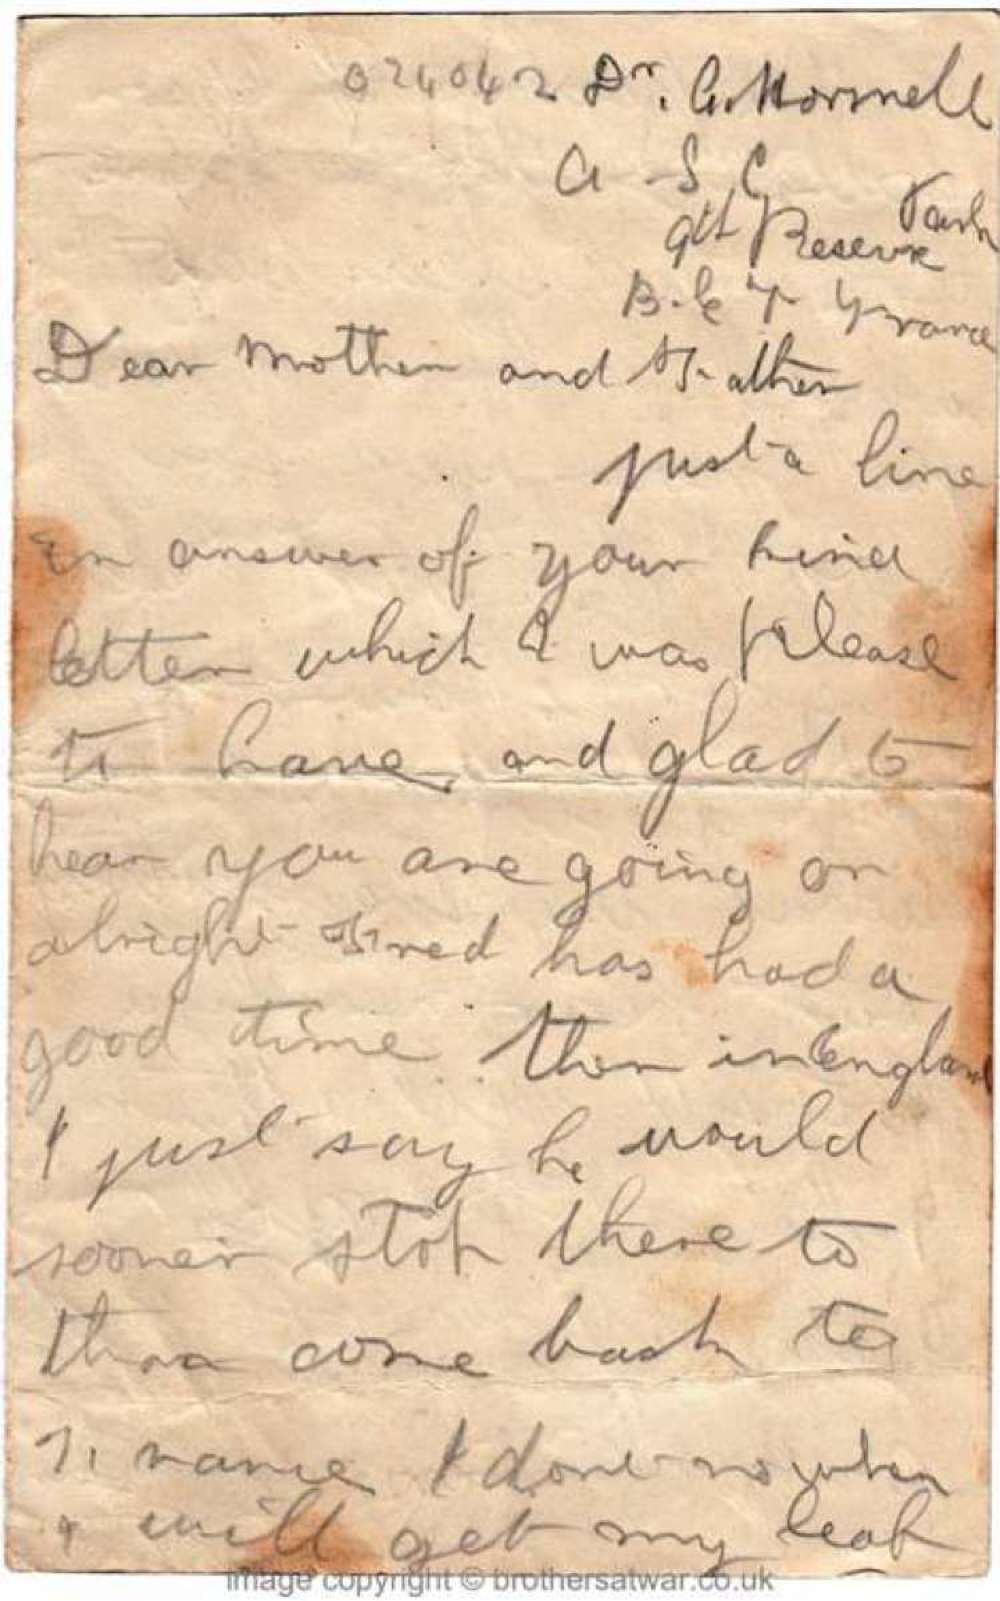 024042 Dr. G. Hornell
A S C
9th Reserve Park
B. E F France
Dear Mother and Father
just a line
in answer of your kind
letter which I was please
to have, and glad to
hear you are going on
alright Fred has had a
good time then in England
I just say he would
sooner stop there to
than come back to
France I dont no when
I will get my leaf
image copyright © brothersatwar.co.uk